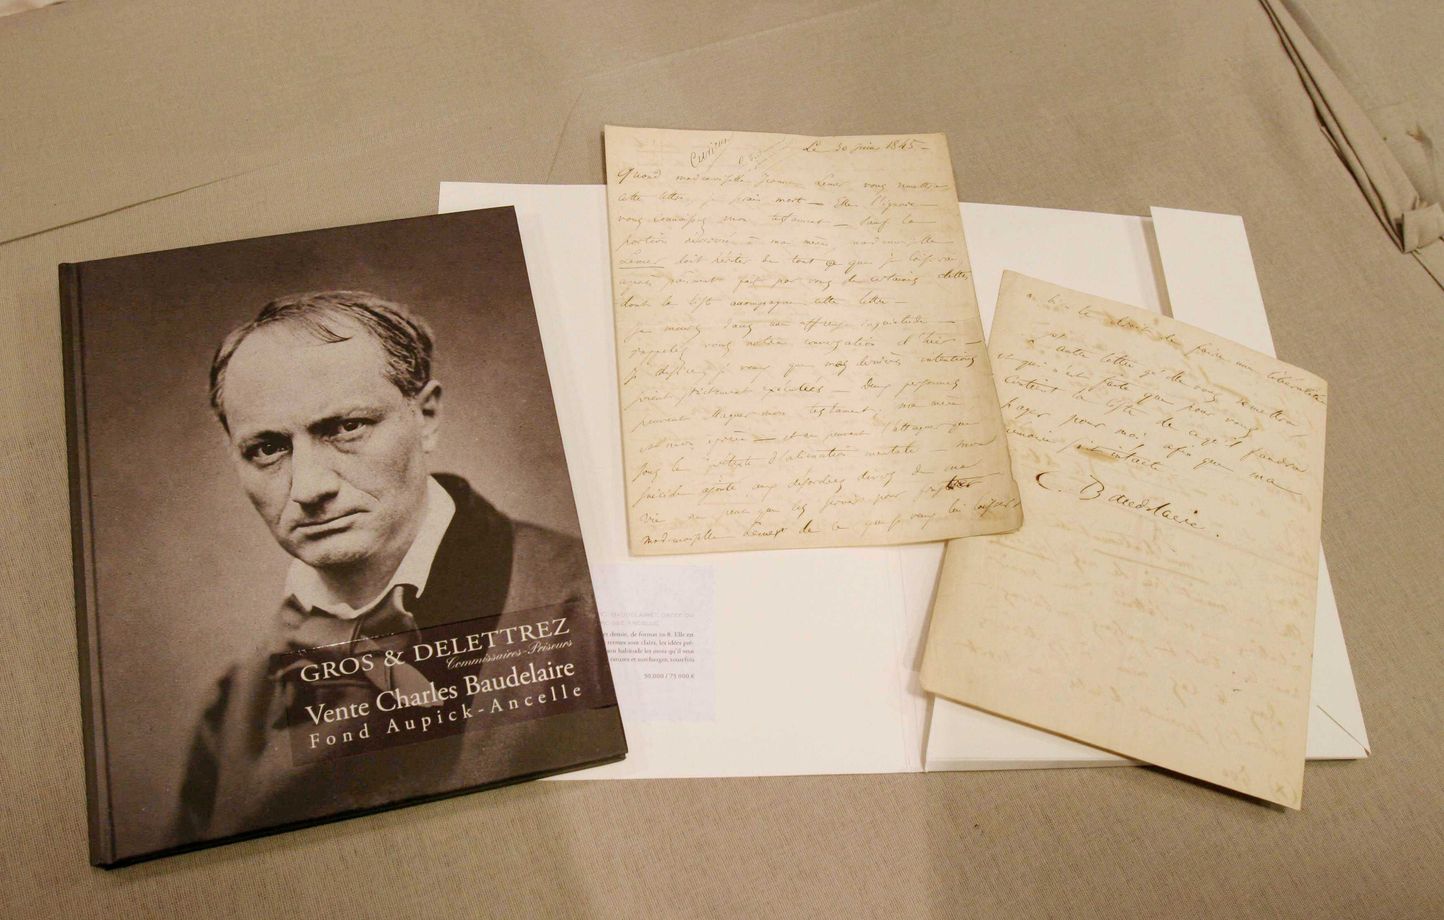 GROS & DELETTREZ
Commissaires-Priseurs
Vente Charles Baudelaire
Fond Aupick-Ancelle
Le 30 juin 1845 —
Quand mademoiselle Jeanne Lemer vous remettra
cette lettre, je serai mort — Elle l'ignore
vous connaissez mon testament — Sauf la
portion réservée à ma mère, mademoiselle
Lemer doit hériter de tout ce que je laisserai
après paiement fait par vous de certaines dettes
dont la liste accompagne cette lettre —
Je meurs dans une affreuse inquiétude —
rappelez vous notre conversation d'hier —
Je désire, je veux que mes dernières intentions
soient strictement exécutées — Deux personnes
peuvent attaquer mon testament : ma mère
et mon frère — et ne peuvent l'attaquer que
sous le prétexte d'aliénation mentale — Mon
suicide ajouté aux désordres divers de ma
vie ne peut que les servir pour frustrer
mademoiselle Lemer de ce que je veux lui laisser
a bien le droit de faire une libéralité
autre lettre qu'elle vous remettra,
et qui n'est faite que pour vous
contient la liste de ce qu'il faudra
payer pour moi afin que ma
mémoire soit intacte
C. Baudelaire.
et dense, de format in-8. Elle est
termes sont clairs, les idées pré-
son habitude les mots qu'il veut
ratures et surcharges, toutefois
50.000 / 75 000 €